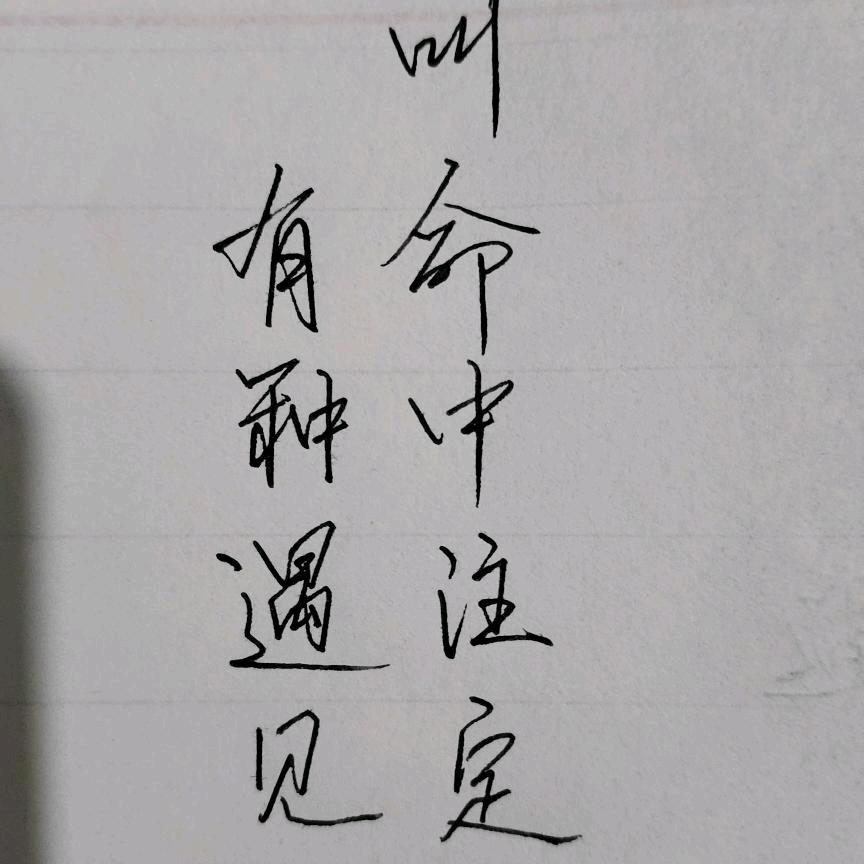 有种遇见
叫命中注定